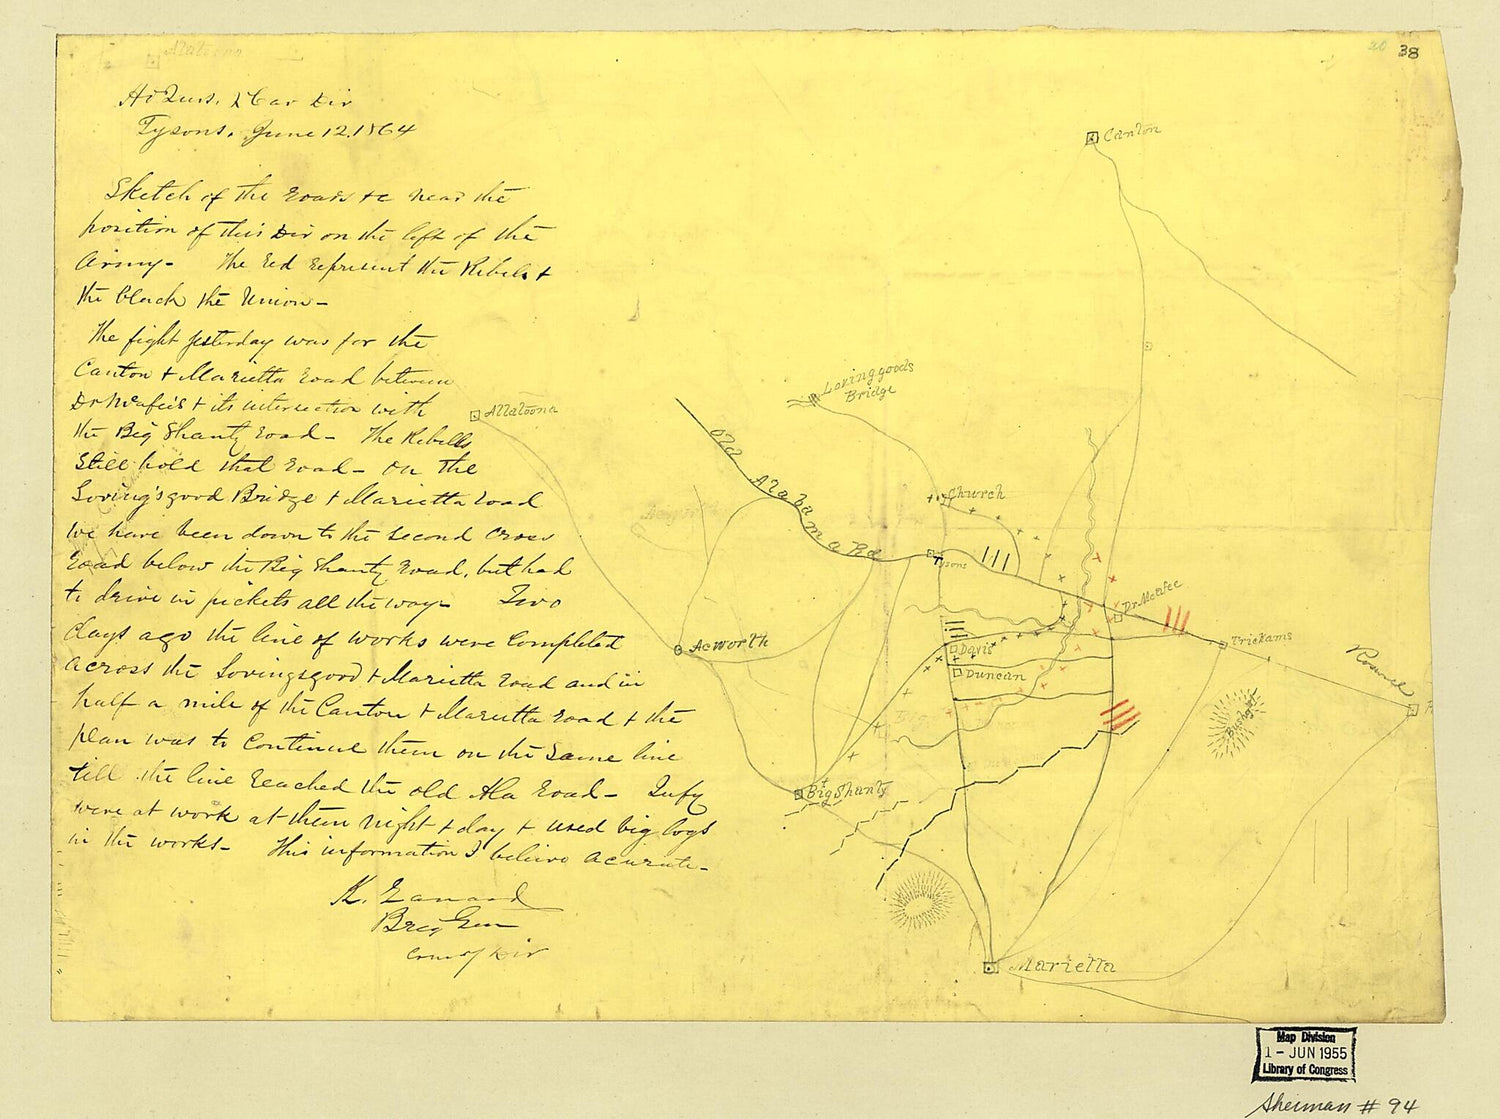 38
20
Alatoona
Hd Qurs. 2 Cav Div
Tysons, June 12. 1864
Sketch of the roads &c near the
position of this Div on the left of the
Army- The red represent the Rebels &
the black the Union-
The fight yesterday was for the
Canton & Marietta road between
Dr McAfee's & its intersection with
the Big Shanty road- The Rebells
still hold that road- on the
Loving'sgood Bridge & Marietta road
we have been down to the second cross
road below the Big Shanty road, but had
to drive in pickets all the way- Two
days ago the line of works were completed
across the Lovingsgood & Marietta road and in
half a mile of the Canton & Marietta road & the
plan was to continue them on the same line
till the line reached the old Ala road- Infy
were at work at them night & day & used big logs
in the works- This information I believe acurate-
K. Garrard
Brig Gen
Com'd'g Div
Canton
Lovinggoods
Bridge
Allatoona
Old Alabama Rd
Church
Acworth
Tysons
Dr. McAfee
Acworth
Davis
Trickams
Duncan
Roswell
R
Brushy
Big Shanty
Marietta
Map Division
1 - JUN 1955
Library of Congress
Sherman # 94